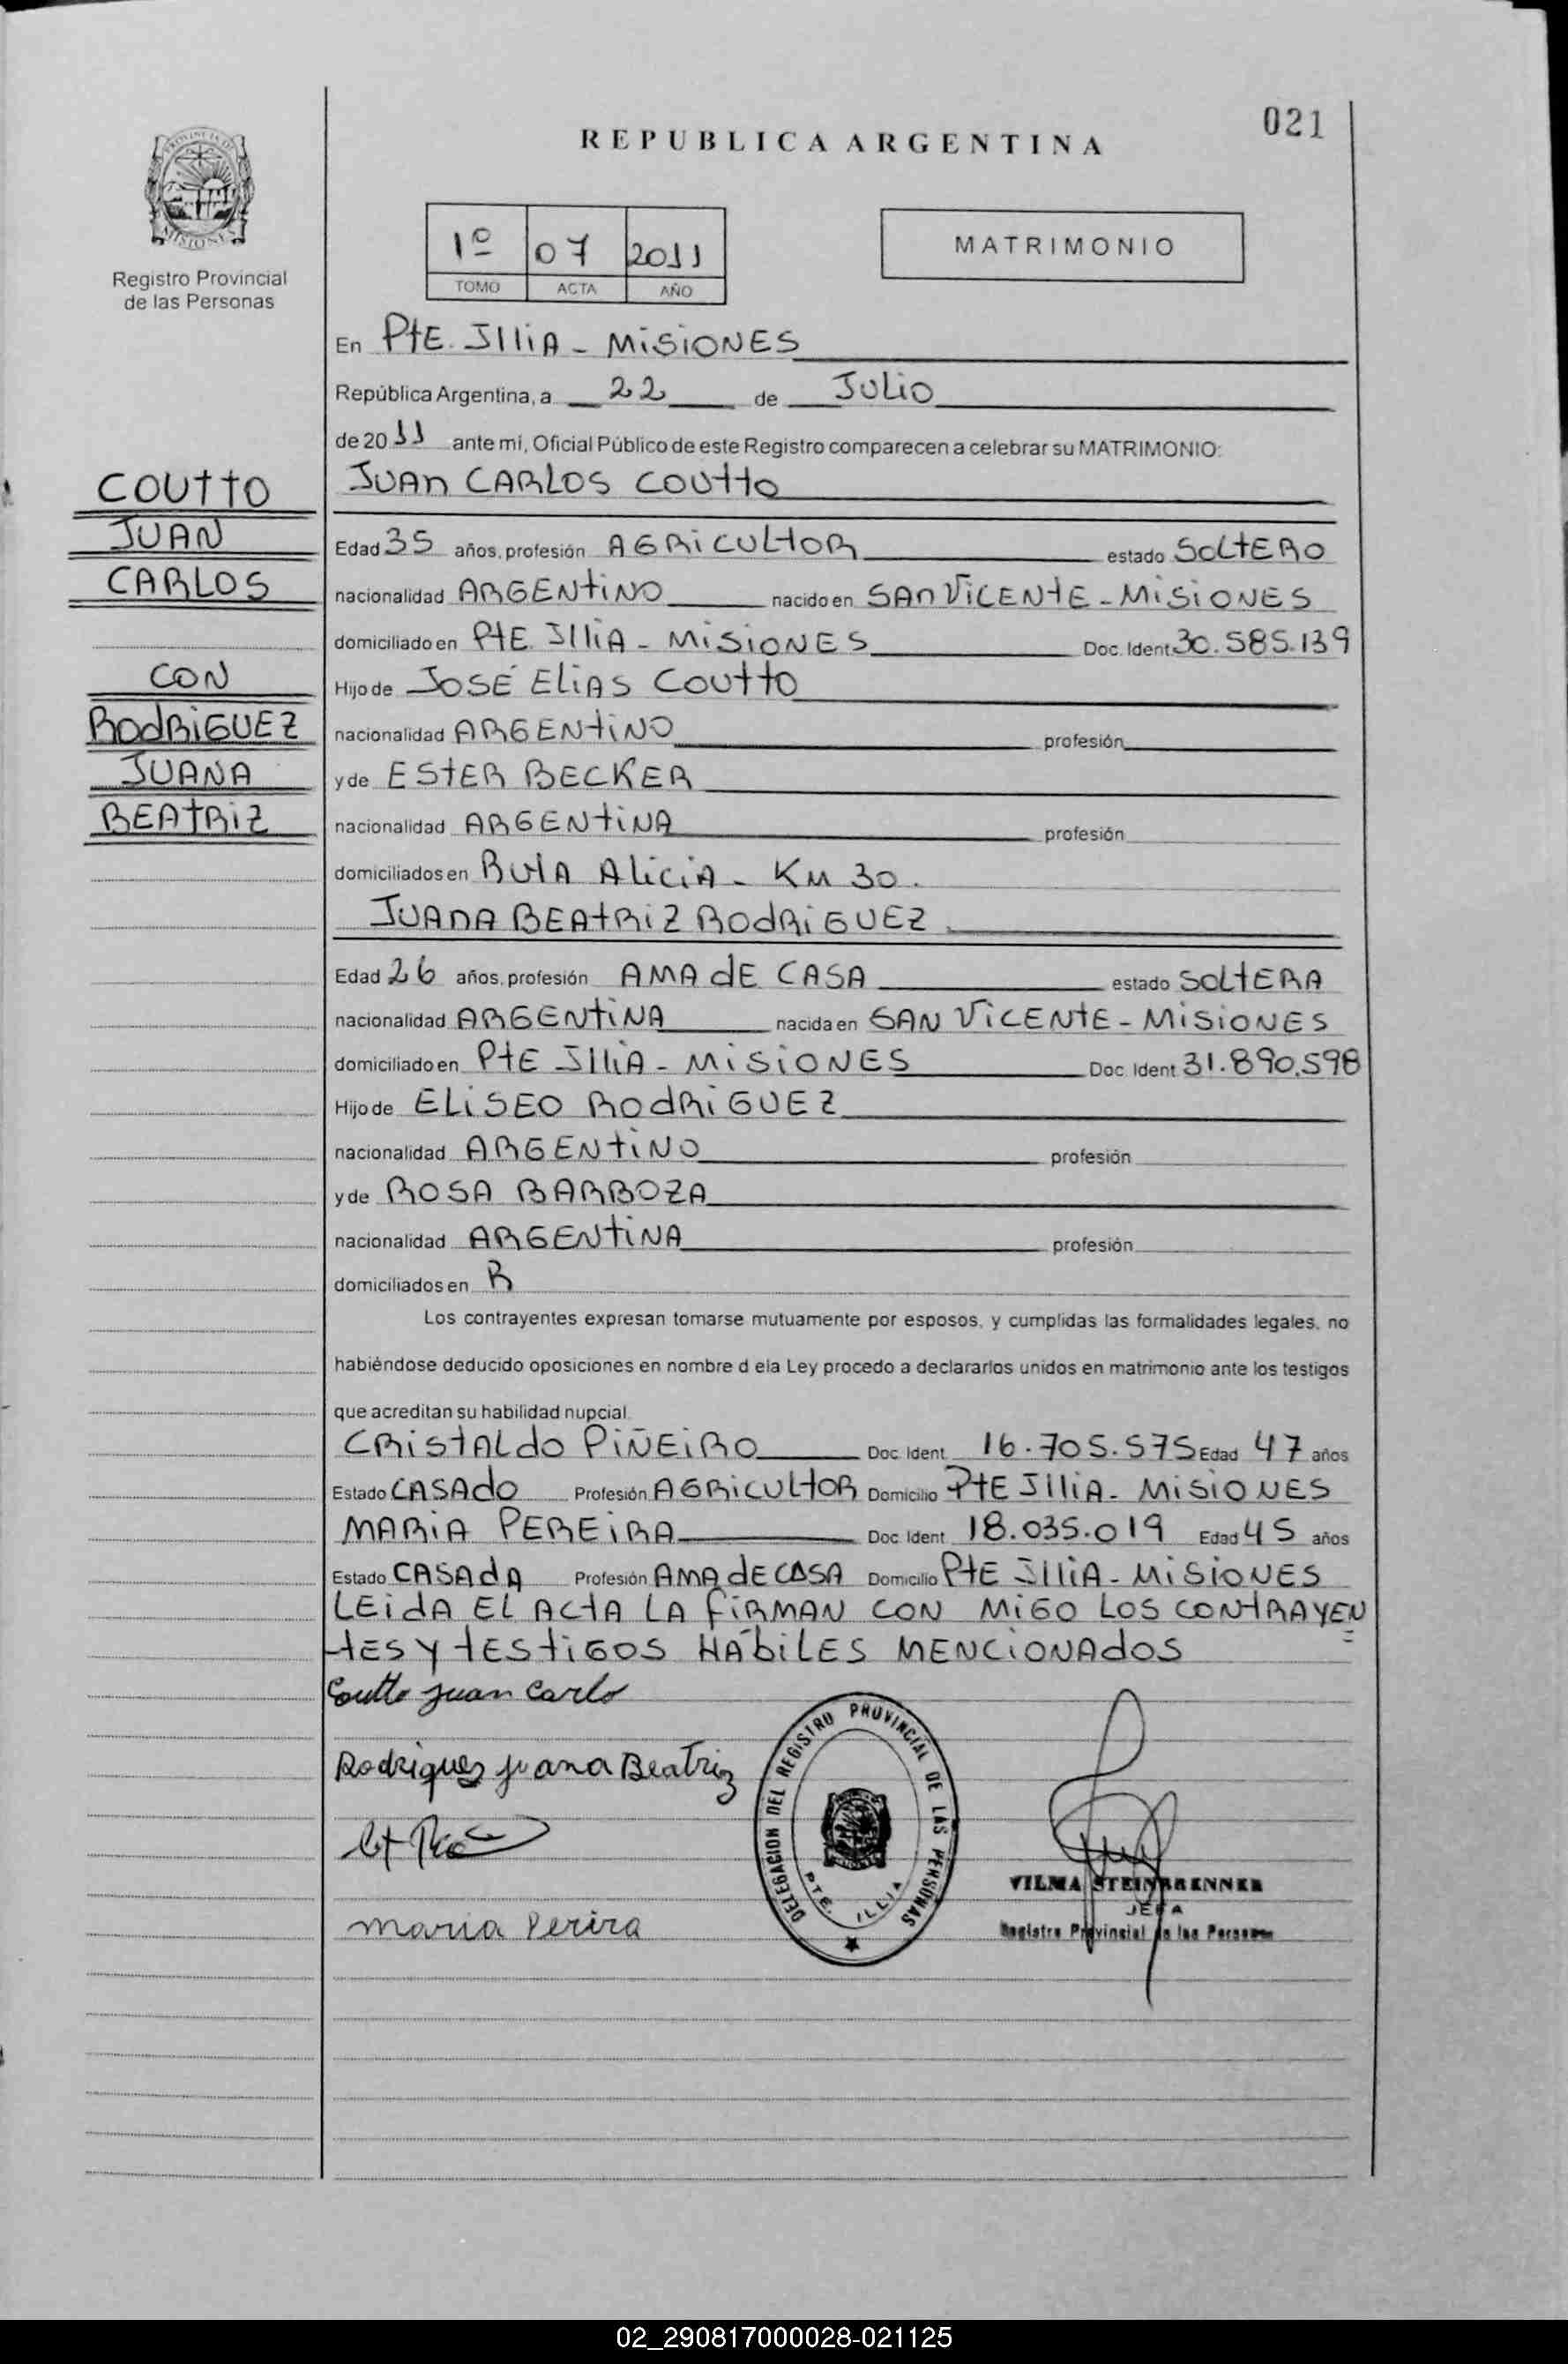 021
REPUBLICA ARGENTINA
PROVINCIA DE
MISIONES
Registro Provincial
de las Personas
1º 07 2011
TOMO ACTA AÑO
MATRIMONIO
En PtE. Illia - Misiones
República Argentina, a 22 de Julio
de 2011 ante mi, Oficial Público de este Registro comparecen a celebrar su MATRIMONIO:
COUttO
JUAN
CARLOS
CON
RodRiGUEZ
JUANA
BEAtRiZ
JUAn CARLOS COUtto
Edad 35 años, profesión AGRiCULtOR estado SOLtERO
nacionalidad ARGENtiNO nacido en SAn ViCENtE - MiSiONES
domiciliado en PtE Illia - MiSiONES Doc. Ident. 30.585.139
Hijo de JOSÉ ELiAS COUttO
nacionalidad ARGENtiNO profesión
y de EStER BECKER
nacionalidad ARGENtiNA profesión
domiciliados en RUtA ALiCiA - KM 30.
JUAnA BEAtRiZ ROdRiGUEZ
Edad 26 años, profesión AMA dE CASA estado SOLtERA
nacionalidad ARGENtiNA nacida en SAN ViCENtE - MiSiONES
domiciliado en PtE Illia - MiSiONES Doc. Ident. 31.890.598
Hijo de ELiSEO ROdRiGUEZ
nacionalidad ARGENtiNO profesión
y de ROSA BARBOZA
nacionalidad ARGENtiNA profesión
domiciliados en R
Los contrayentes expresan tomarse mutuamente por esposos, y cumplidas las formalidades legales, no
habiéndose deducido oposiciones en nombre d ela Ley procedo a declararlos unidos en matrimonio ante los testigos
que acreditan su habilidad nupcial.
CRiStALdO PiÑEiRO Doc. Ident. 16.705.575 Edad 47 años
Estado CASAdO Profesión AGRiCULtOR Domicilio PtE Illia - MiSiONES
MARiA PEREiRA Doc. Ident. 18.035.019 Edad 45 años
Estado CASAdA Profesión AMA dE CASA Domicilio PtE Illia - MiSiONES
LEidA EL ACtA LA fiRMAN CON MiGO LOS CONtRAYEN
=
tES Y tEStiGOS HÁbiLES MENCiONAdOS
Coutto Juan Carlo
Rodriguez Juana Beatriz
Maria Perira
DELEGACION DEL REGISTRO PROVINCIAL DE LAS PERSONAS
PTE. ILLIA
VILMA STEINBRENNER
JEFA
Registro Provincial de las Personas
02_290817000028-021125